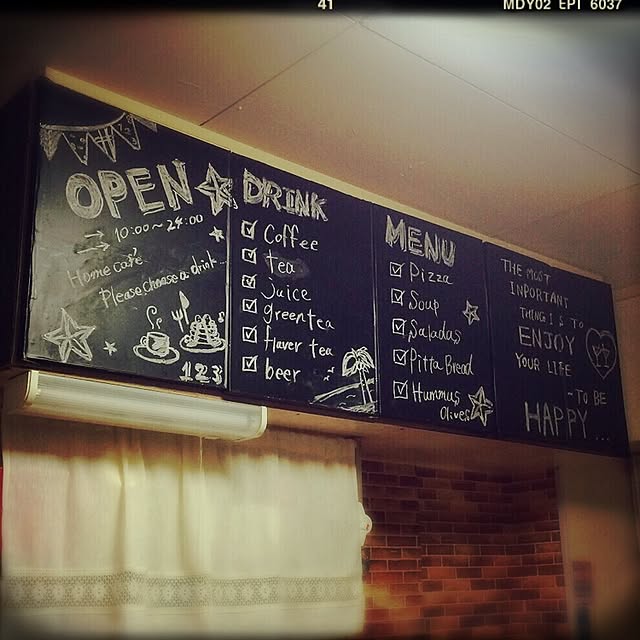 41
MDY02 EPI 6037
OPEN
→ 10:00~24:00
→
Home cafe
Please choose a drink...
123
DRINK
Coffee
tea
Juice
greentea
flaver tea
beer
MENU
Pizza
Soup
Saladas
Pitta Bread
Hummus
Olives
THE MOST
INPORTANT
THING IS TO
ENJOY
YOUR LIFE
~TO BE
HAPPY...